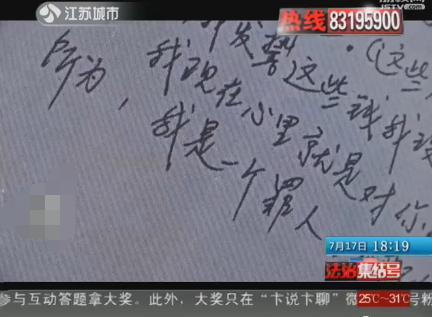 江苏城市
JSTV.com
热线 83195900
发誓 · (这些
所为, 我现在这些钱我
我是心里就是对你
一个罪人
7月17日 18:19
法治集结号
参与互动答题拿大奖。此外，大奖只在“卡说卡聊”微
25℃~31℃
号粉